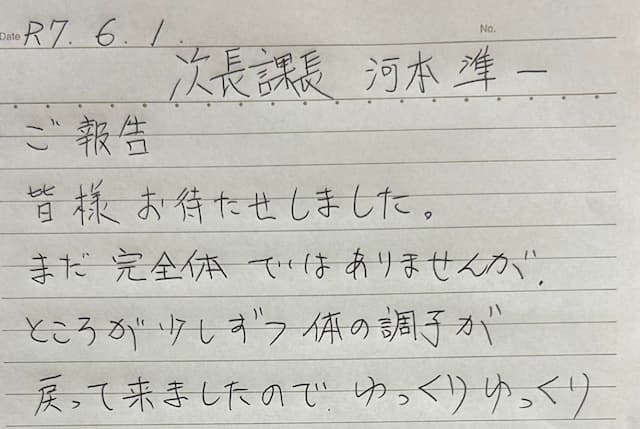 Date R7. 6. 1. No.
次長課長 河本準一
ご報告
皆様お待たせしました。
まだ完全体ではありませんが、
ところが少しずつ体の調子が
戻って来ましたので、ゆっくりゆっくり